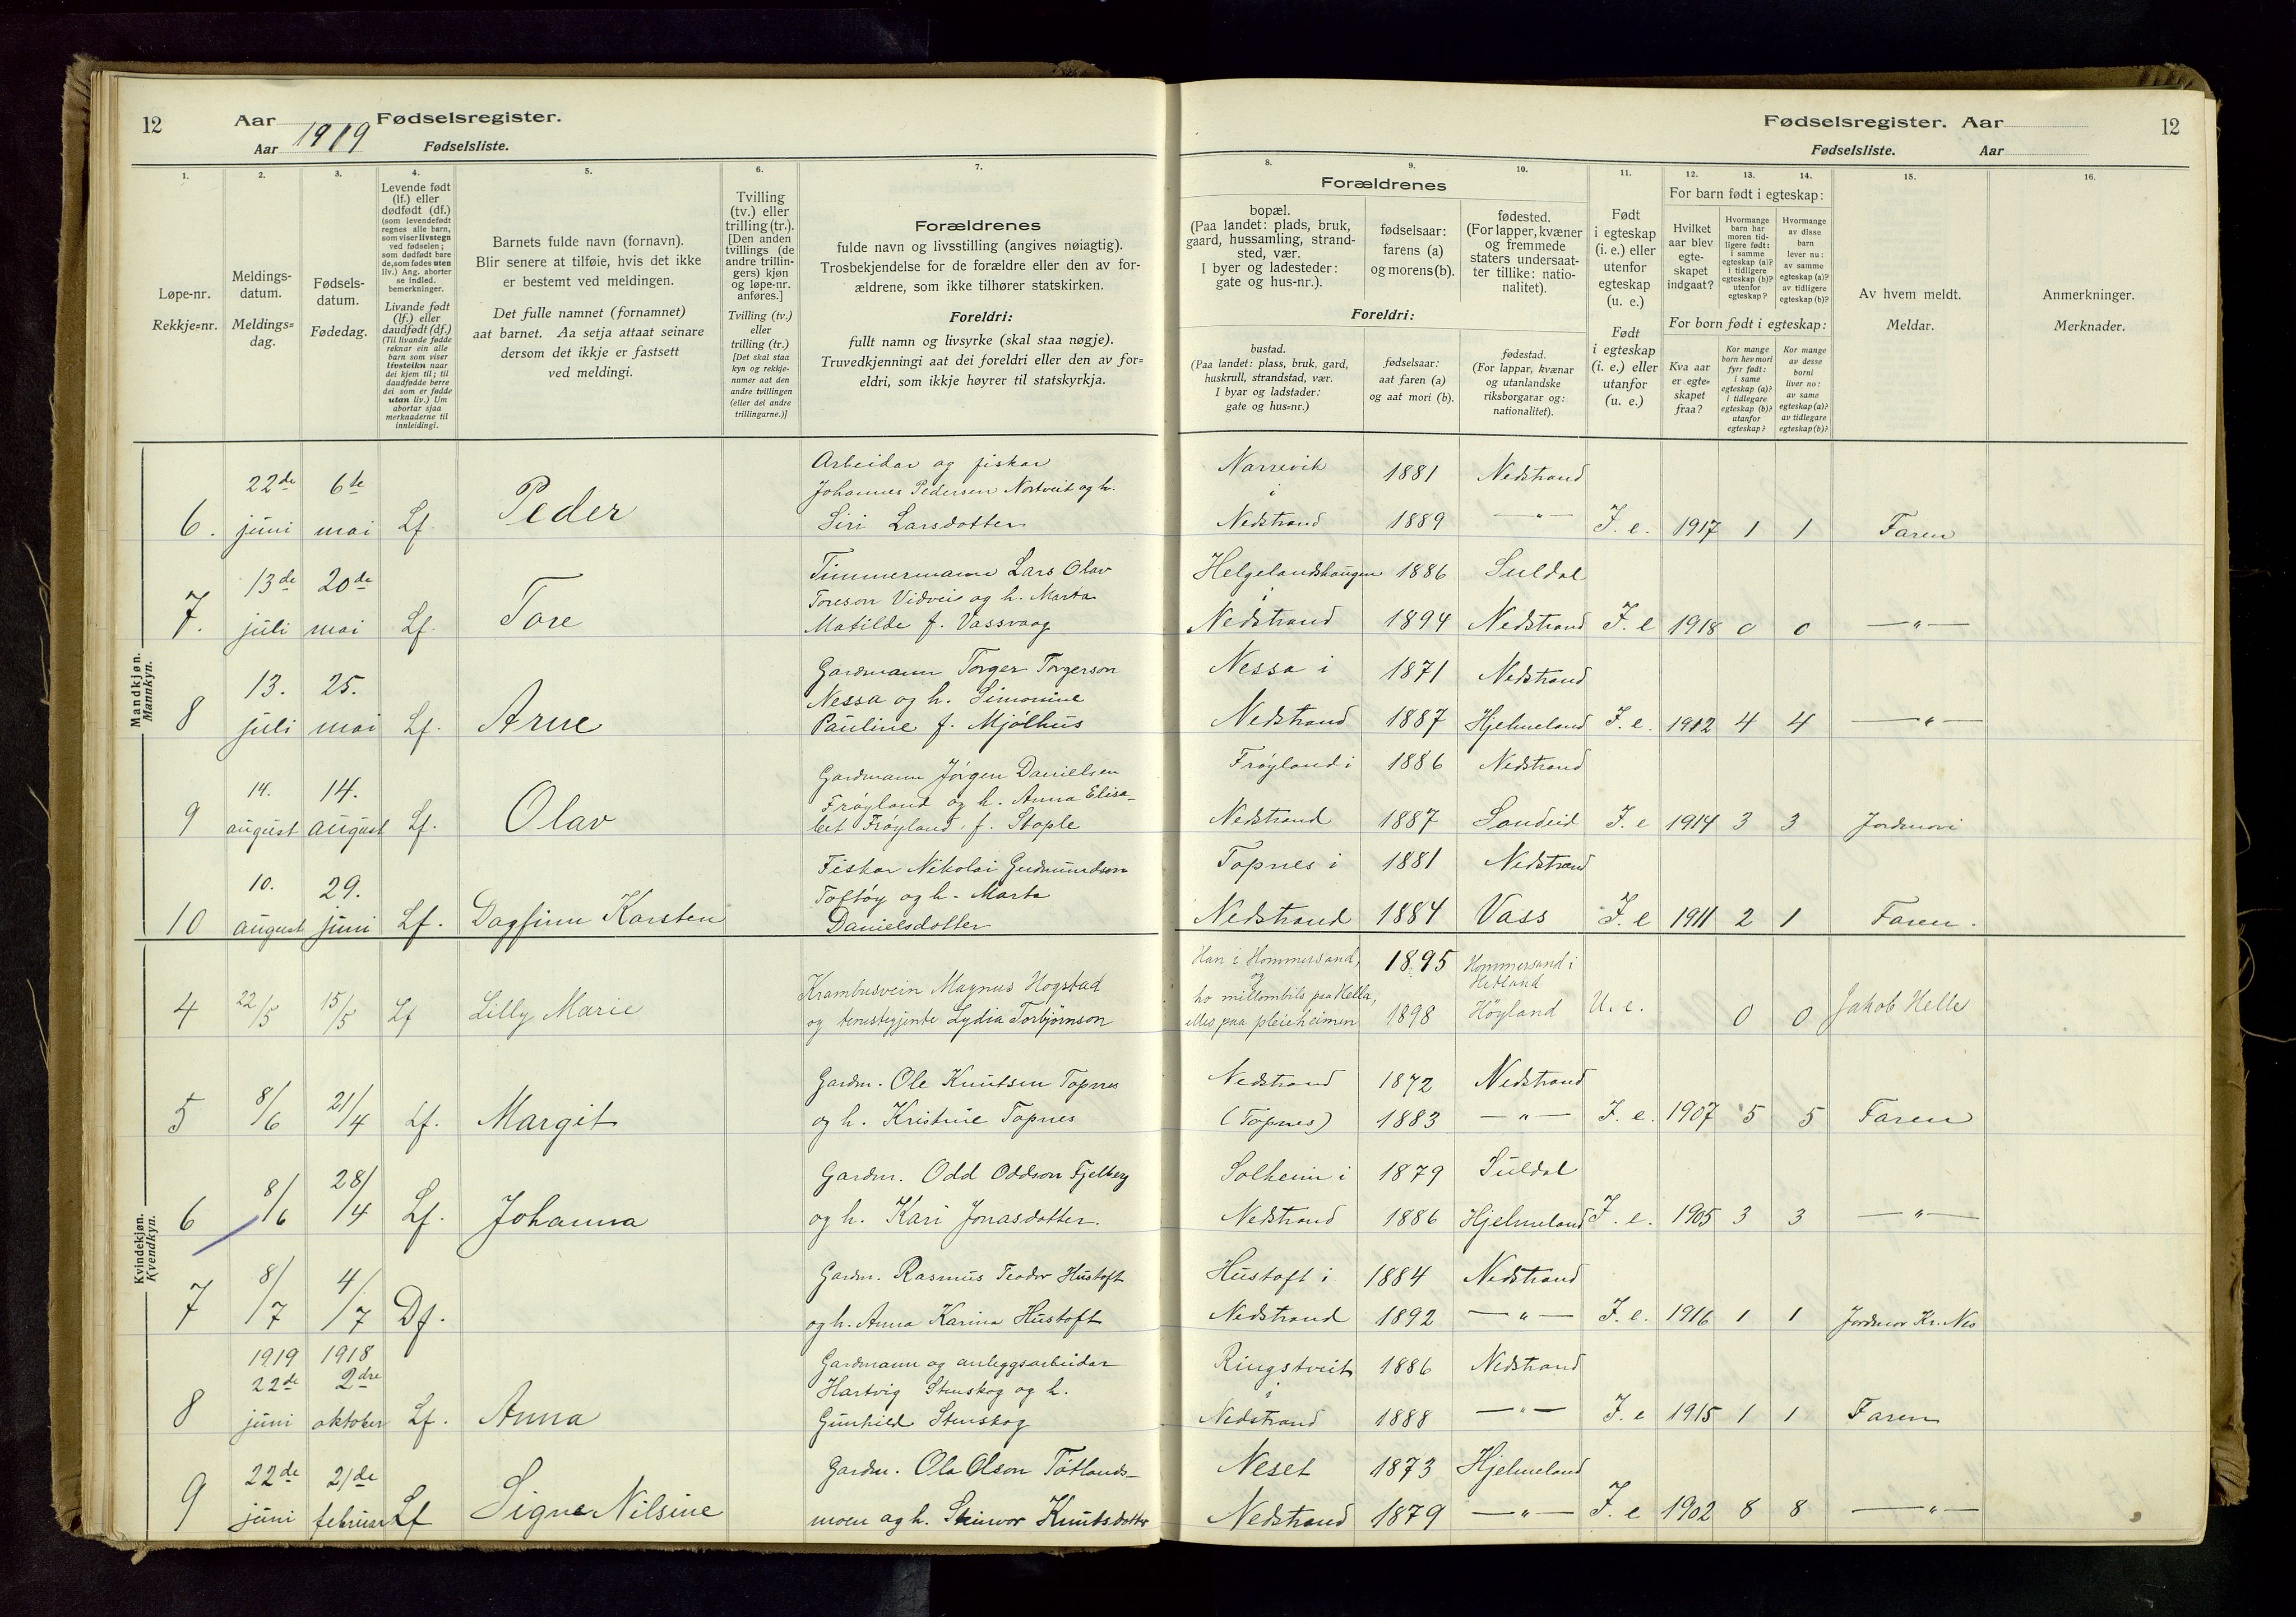 12
Aar
Fødselsregister.
Aar 1919
Fødselsliste.
Fødselsregister. Aar
12
Fødselsliste.
Aar
1.
Løpe-nr.
Rekkje=nr.
2.
Meldings-
datum.
Meldings=
dag.
3.
Fødsels-
datum.
Fødedag.
4.
Levende født
(lf.) eller
dødfødt (df.)
(som levendefødt
regnes alle barn,
som viser livstegn
ved fødselen;
som dødfødt bare
de, som fødes uten
liv.) Ang. aborter
se indled.
bemerkninger.
Livande født
(lf.) eller
daudfødt (df.)
(Til livande fødde
reknar ein alle
barn som viser
livsteikn naar
dei kjem til; til
daudfødde berre
dei som er fødde
utan liv.) Um
abortar sjaa
merknaderne til
innleidingi.
5.
Barnets fulde navn (fornavn).
Blir senere at tilføie, hvis det ikke
er bestemt ved meldingen.
Det fulle namnet (fornamnet)
aat barnet. Aa setja attaat seinare
dersom det ikkje er fastsett
ved meldingi.
6.
Tvilling
(tv.) eller
trilling (tr.).
[Den anden
tvillings (de
andre trillin-
gers) kjøn
og løpe-nr.
anføres.]
Tvilling (tv.)
eller
trilling (tr.)
[Det skal staa
kyn og rekkje-
numer aat den
andre tvillingen
(eller dei andre
trillingarne.)]
7.
Forældrenes
fulde navn og livsstilling (angives nøiagtig).
Trosbekjendelse for de forældre eller den av for-
ældrene, som ikke tilhører statskirken.
Foreldri:
fullt namn og livsyrke (skal staa nøgje).
Truvedkjenningi aat dei foreldri eller den av for=
eldri, som ikkje høyrer til statskyrkja.
8.
9.
10.
Forældrenes
bopæl.
(Paa landet: plads, bruk,
gaard, hussamling, strand-
sted, vær.
I byer og ladesteder:
gate og hus-nr.).
fødselsaar:
farens (a)
og morens (b).
fødested.
(For lapper, kvæner
og fremmede
staters undersaat-
ter tillike: natio-
nalitet).
Foreldri:
bustad.
(Paa landet: plass, bruk, gard,
huskrull, strandstad, vær.
I byar og ladstader:
gate og hus=nr.)
fødselsaar:
aat faren (a)
og aat mori (b).
fødestad.
(For lappar, kvænar
og utanlandske
riksborgarar og:
nationalitet).
11.
Født
i egteskap
(i. e.) eller
utenfor
egteskap
(u. e.)
Født
i egteskap
(i. e.) eller
utanfor
(u. e.)
12.
13.
14.
For barn født i egteskap:
Hvilket
aar blev
egte-
skapet
indgaat?
Hvormange
barn har
moren tid-
ligere født:
i samme
egteskap (a)?
i tidligere
egteskap (b)?
utenfor
egteskap?
Hvormange
av disse
barn
lever nu:
av samme
egteskap (a)?
av tidligere
egteskap (b)?
For born født i egteskap:
Kva aar
er egte=
skapet
fraa?
Kor mange
born hev mori
fyrr født:
i same
egteskap (a)?
i tidlegare
egteskap (b)?
utanfor
egteskap?
Kor mange
av desse
borni
liver no:
av same
egteskap (a)?
av tidlegare
egteskap (b)?
15.
Av hvem meldt.
Meldar.
16.
Anmerkninger.
Merknader.
Mandkjøn.
Mannkyn.
Arbeidar og fiskar Narrevik
22de 6te Johannes Pedersen Nortveit og h. i 1881 Nedstrand
6. juni mai Lf. Peder Siri Larsdotter Nedstrand 1889 —"— I. e. 1917 1 1 Faren
13de 20de Timmermann Lars Olav Helgelandshaugen 1886 Suldal
Toreson Vidvei og h. Marta i
7. juli mai Lf. Tore Matilde f. Vassvaag Nedstrand 1894 Nedstrand I. e 1918 0 0 —"—
13. 25. Gardmann Torger Torgerson Nessa i 1871 Nedstrand
Nessa og h. Simonine
8 juli mai Lf. Arne Pauline f. Mjølhus Nedstrand 1887 Hjelmeland I. e. 1912 4 4 —"—
14. 14. Gardmann Jørgen Danielsen Frøyland i 1886 Nedstrand
Frøyland og h. Anna Elisa-
9 august august Lf. Olav bet Frøyland f. Stople Nedstrand 1887 Sandeid I. e 1914 3 3 Jordmori
10. 29. Fiskar Nikolai Gudmundson Topnes i 1881 Nedstrand
Toftøy og h. Marta
10 august juni Lf. Dagfinn Karsten Danielsdotter Nedstrand 1884 Vass I. e 1911 2 1 Faren.
Kvindekjøn.
Kvendkyn.
Han i Hommersand, 1895 Hommersand i
Krambusvein Magnus Hogstad og Hetland
ho millombils paa Hella,
4 22/5 15/5 Lf Lilly Marie og tenestegjente Lydia Torbjørnson elles paa pleieheimen 1898 Høyland U. e. 0 0 Jakob Helle
Gardm. Ole Knutsen Topnes Nedstrand 1872 Nedstrand
5 8/6 21/4 Lf. Margit og h. Kristine Topnes (Topnes) 1883 —"— I. e. 1907 5 5 Faren
Gardm. Odd Oddson Fjelberg Solheim i 1879 Suldal
6 8/6 28/4 Lf. Johanna og h. Kari Jonasdotter. Nedstrand 1886 Hjelmeland I. e. 1905 3 3 —"—
Gardm. Rasmus Teodor Hustoft Hustoft i 1884 Nedstrand
7 8/7 4/7 Df. og h. Anna Karina Hustoft Nedstrand 1892 —"— I. e. 1916 1 1 Jordmor Kr. Nes
1919 1918 Gardmann og anleggsarbeidar Ringstveit 1886 Nedstrand
22de 2dre Hartvig Stenskog og h. i
8 juni oktober Lf. Anna Gunhild Stenskog Nedstrand 1888 —"— I. e 1915 1 1 Faren
22de 21de Gardm. Ola Olson Tøtlands- Neset 1873 Hjelmeland
9 juni februar Lf Signe Nilsine moen og h. Steinvor Knutsdotter Nedstrand 1879 —"— I. e 1902 8 8 —"—